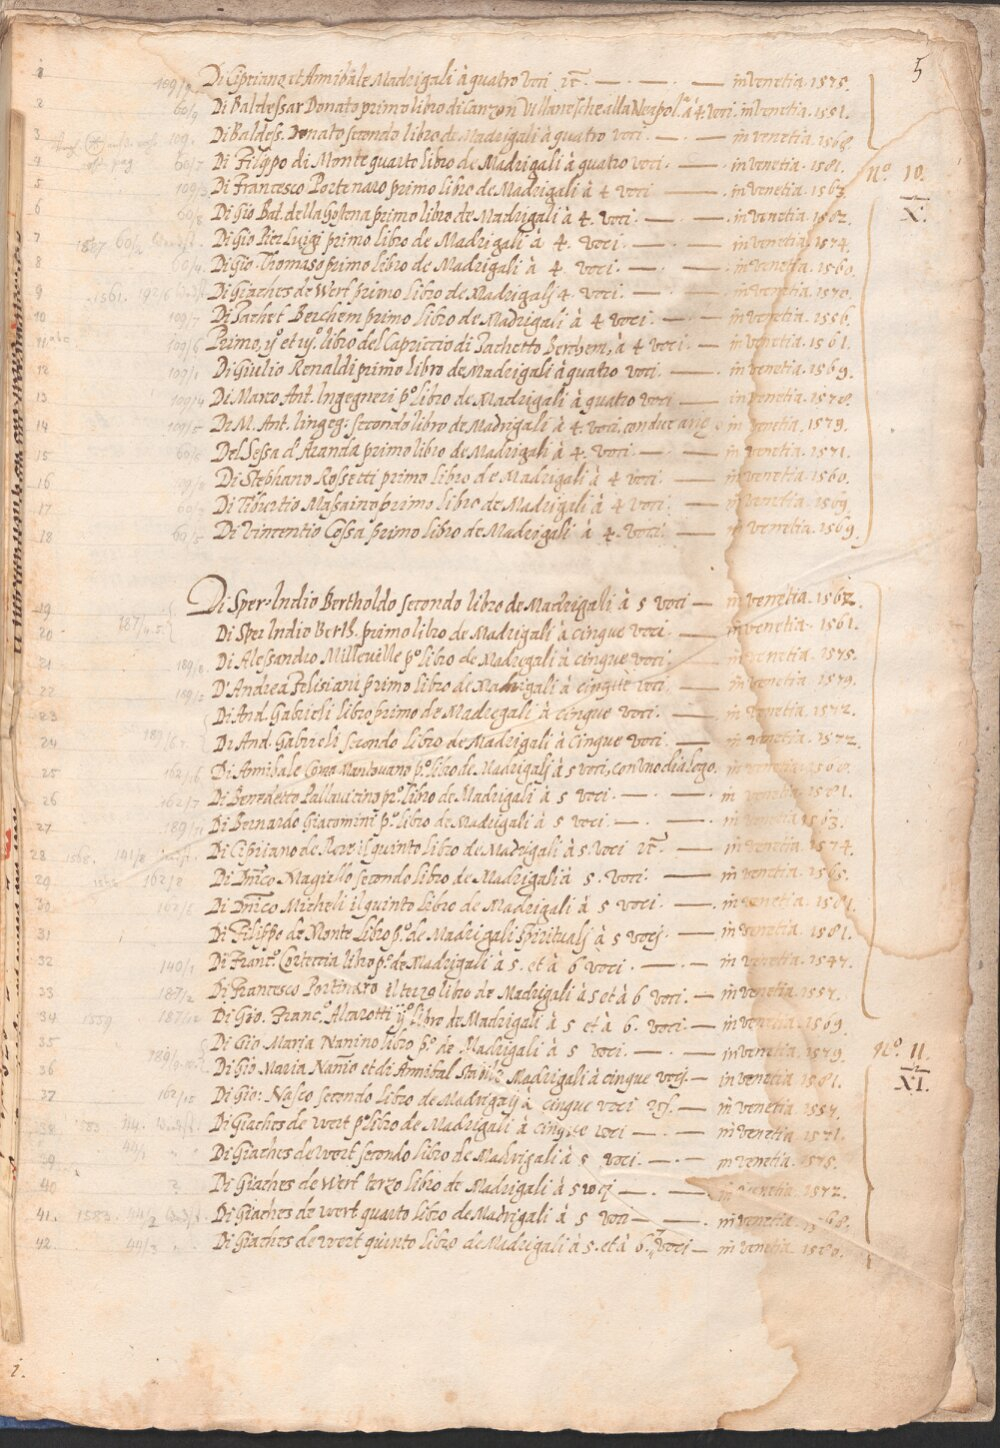 5
1 109/2 Di Cipriano et Annibale Madrigali à quatro voci in venetia. 1575.
2 60/9 Di Baldessar Donato primo libro di Canzon Villanesche alla Neapol.ª à 4 voci. in venetia. 1551.
3 109. Di Baldess. Donato secondo libro de Madrigali à quatro voci. in venetia. 1568.
4 60/7 Di Filippo di Monte quarto libro de Madrigali à quatro voci. in venetia. 1581.
nº. 10.
X.
5 109/3 Di Francesco Portenaro primo libro de Madrigali à 4 voci in venetia. 1563.
6 60/8 Di Gio Bat. della Gostena primo libro de Madrigali à 4. voci. in venetia. 1582.
7 1587 60/2 Di Gio Pier Luigi primo libro de Madrigali à 4. voci. in venetia. 1574.
8 60/4. Di Gio. Thomaso primo libro de Madrigali à 4 voci. in venetia. 1560.
9 1561. Di Giaches de Wert primo libro de Madrigalj 4. voci. in venetia. 1570.
10 109/7 Di Jachet Berchem primo libro de Madrigali à 4 voci. in venetia. 1556.
11 109/6 Primo, ijº et iijº. libro del Capriccio di Jachetto Berchem, à 4 voci. in venetia. 1561.
12 109/1 Di Giulio Renaldi primo libro de Madrigali à quatro voci. in venetia. 1569.
13 109/4 Di Marco Ant. Ingegneri pº. libro de Madrigali à quatro voci in venetia. 1578.
14 109/5 Di M. Ant. lingeg: secondo libro de Madrigali à 4. voci, con due arie in venetia. 1579.
15 60/6 Del Sessa d'Aranda primo libro de Madrigali à 4. voci. in venetia. 1571.
16 Di Stephano Rossetti primo libro de Madrigali à 4 voci. in venetia. 1560.
17 Di Tiburtio Massaino primo libro de Madrigali à 4 voci. in venetia. 1569.
18 60/5 Di Vincentio Cossa primo libro de Madrigali à 4. voci. in venetia. 1569.
19 Di Sper. Indio Bertholdo secondo libro de Madrigali à 5 voci in venetia. 1562.
20 187/4.5. Di Sper Indio Berth. primo libro de Madrigali à cingue voci. in venetia. 1561.
21 189/8. Di Alessandro Milleville pº libro de Madregali à cingue voci. in venetia. 1575.
22 189/2 D'Andrea Felisiani primo libro de Madrigali à cingue voci. in venetia. 1579.
23 Di And. Gabrieli libro primo de Madregali à cingue voci. in venetia. 1572.
24 189/6.7. Di And. Gabrieli secondo libro de Madrigali à Cingue voci. in venetia. 1572.
25 162/6 Di Annibale Coma Mantovano pº. libro de Madrigalj à 5 voci, con uno dialogo. in venetia. 1568.
26 162/7 Di Benedetto Pallavicino pº. libro de Madrigali à 5 voci. in venetia. 1581.
27 189/11 Di Bernardo Giacomini pº. libro de Madrigali à 5 voci. in venetia. 1563.
28 1568. 141/8 Di Cipriano de Rore il quinto libro de Madrigali à 5. voci in venetia. 1574.
29 162/8 Di Dnico Magiello secondo libro de Madrigali à 5. voci. in venetia. 1568.
30 162/5 Di Dnico Micheli il quinto libro de Madrigali à 5 voci. in venetia. 1581.
31 Di Filippo de Monte Libro pº. de Madrigali spiritualj à 5 vocj. in venetia. 1581.
32 140/1 Di Francº. Corteccia libro pº. de Madrigali à 5. et à 6 voci. in venetia. 1547.
33 187/2 Di Francesco Portinaro il terzo libro de Madrigali à 5 et à 6 voci. in venetia. 1557.
34 1559 187/12 Di Gio. Francº. Alcarotti ijº libro de Madrigali à 5 et à 6. voci. in venetia. 1569.
35 Di Gio Maria Nanino libro pº. de Madrigali à 5 voci. in venetia. 1579.
nº. 11.
XI.
36 189/9.10. Di Gio Maria Nanino et di Annibal Stabile Madrigali à cingue vocj. in venetia. 1581.
37 162/15 Di Gio: Nasco secondo libro de Madrigalj à cingue voci in venetia. 1557.
38 1583 Di Giaches de wert pº libro de Madrigali à cingue voci in venetia. 1571.
39 44/1 Di Giaches de wert secondo libro de Madrigali à 5 voci. in venetia. 1575.
40 Di Giaches de Wert terzo libro de Madrigali à 5 vocj in venetia. 1572.
41. 1583. 44/2 Di Giaches de wert quarto libro de Madrigali à 5 voci in venetia. 1568.
42. 44/3 Di Giaches de wert quinto libro de Madrigali à 5. et à 6. voci in venetia. 1580.